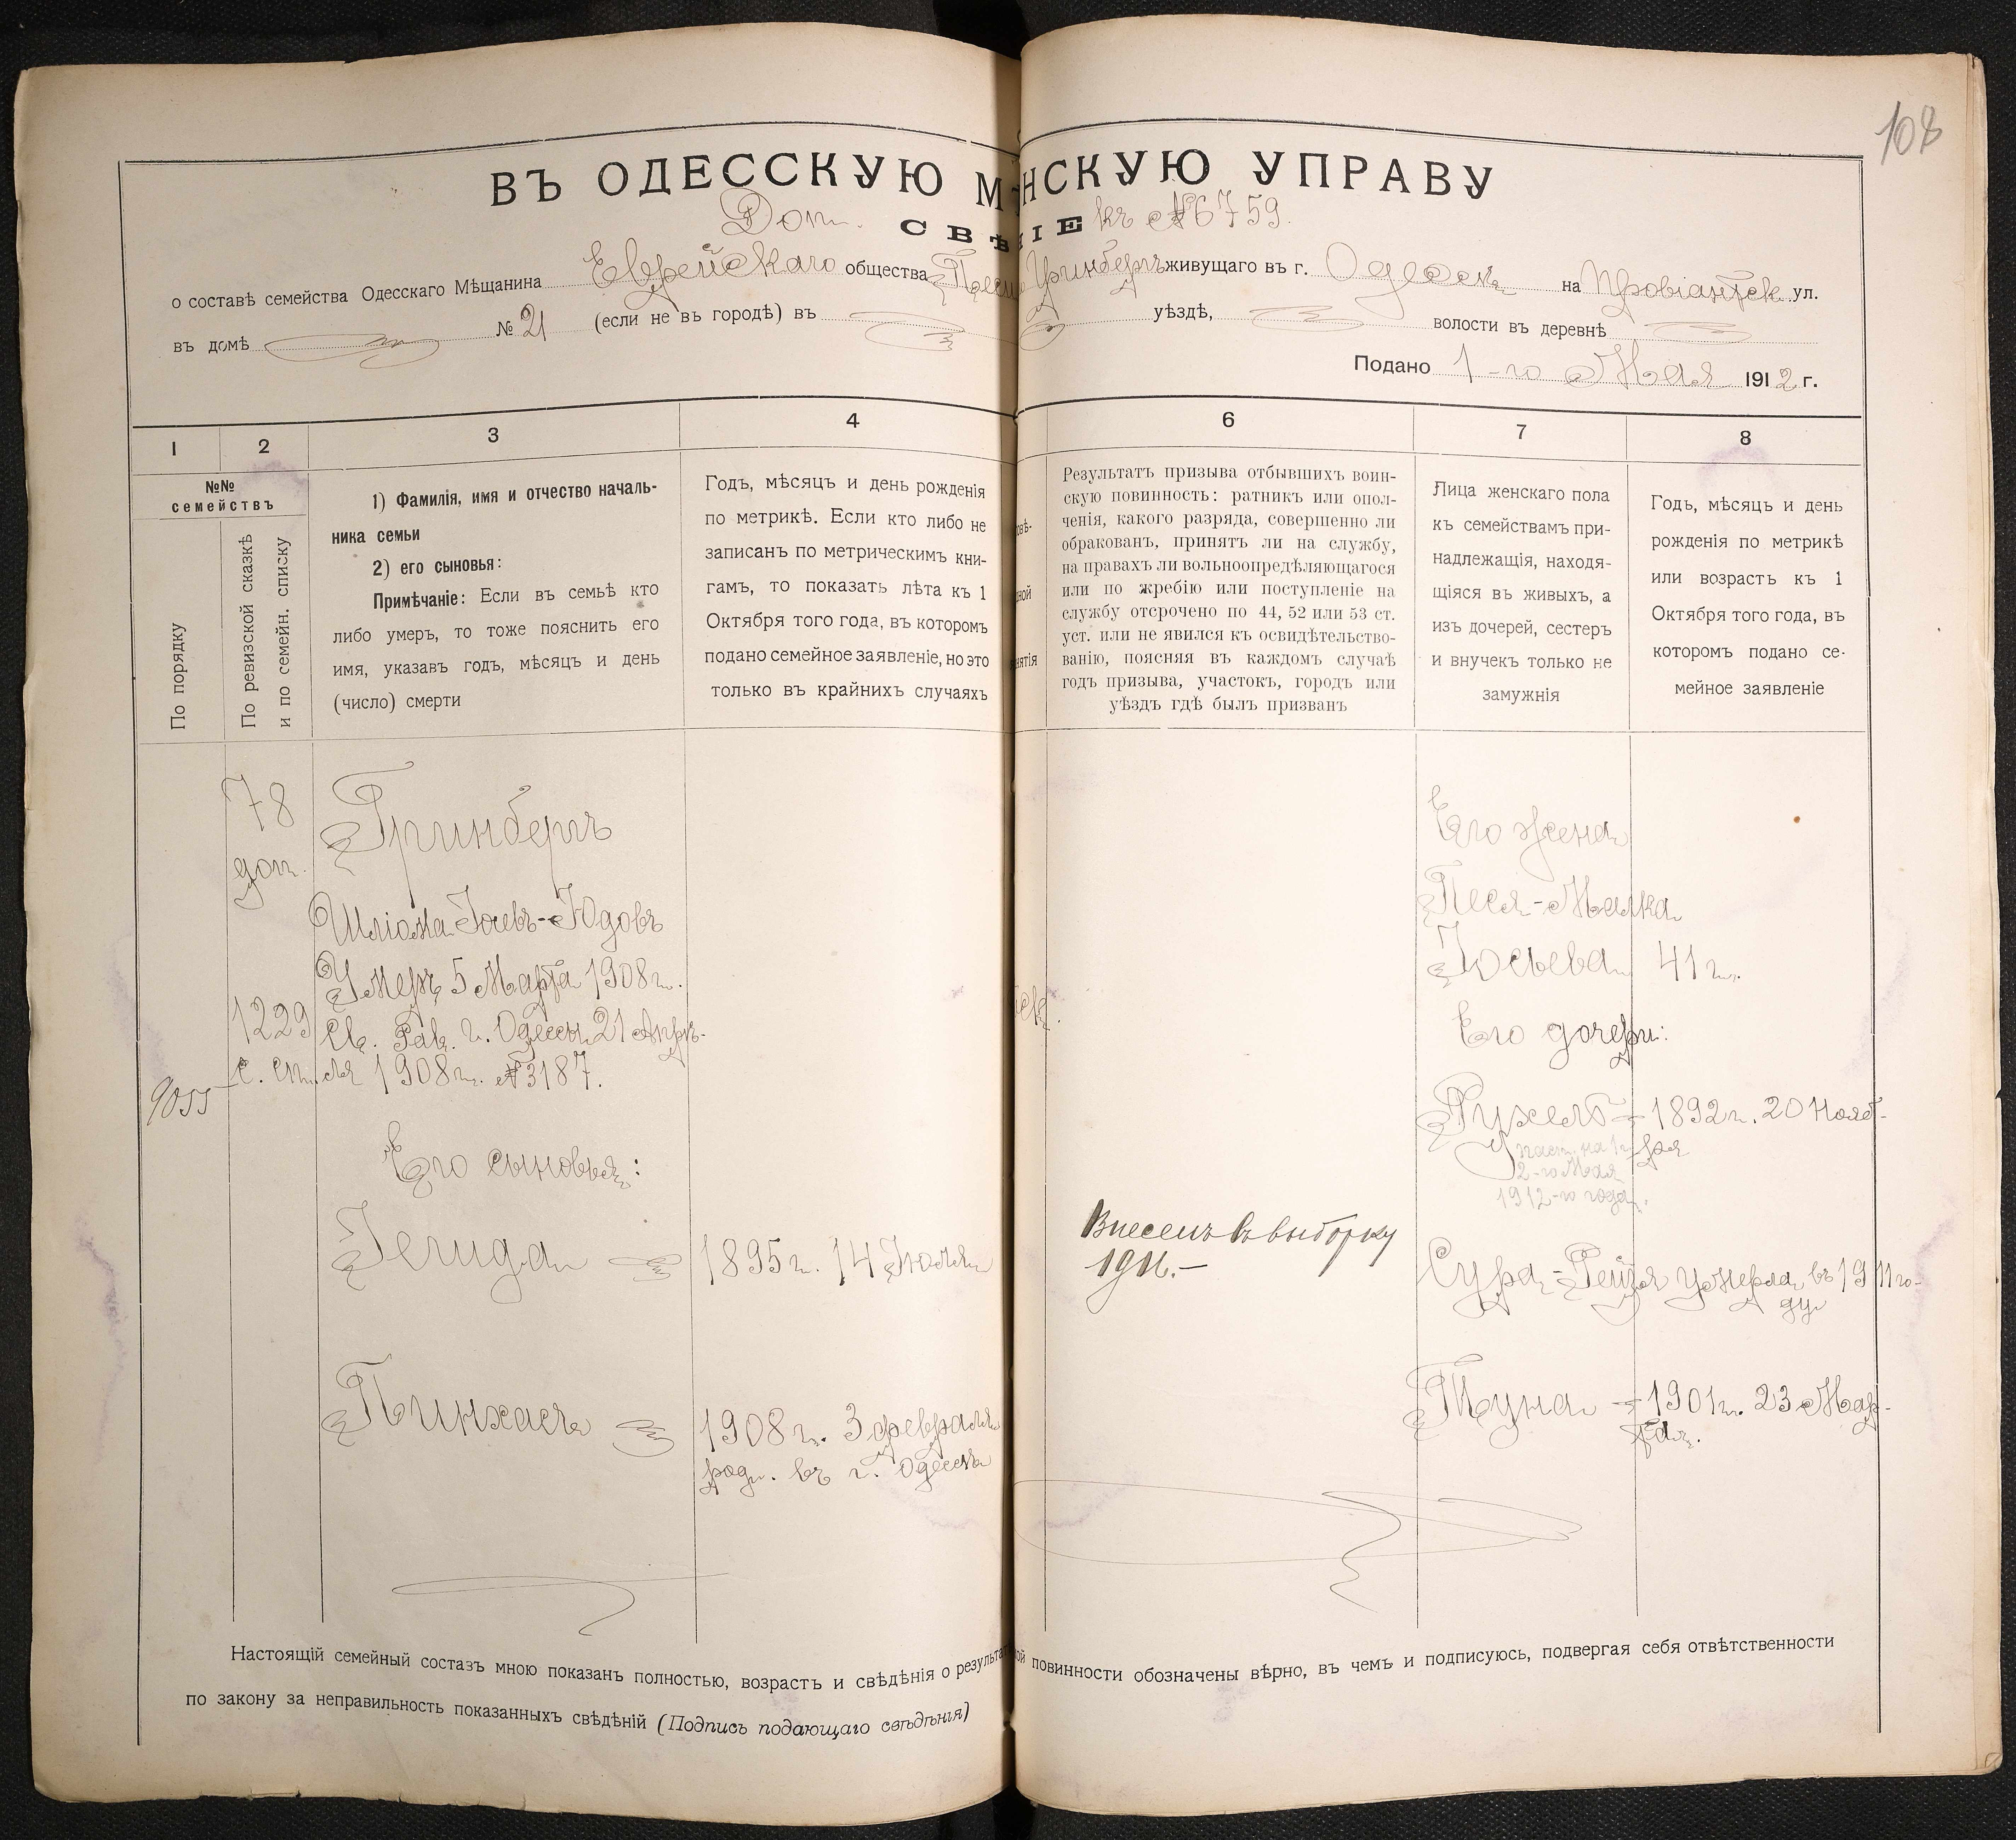 108
ВЪ ОДЕССКУЮ М НСКУЮ УПРАВУ
Доп. СВѢ НІЕ къ №6759.
о составѣ семейства Одесскаго Мѣщанина Еврейскаго общества Песи Гринбергъ живущаго въ г. Одессѣ на Провіантск ул.
въ домѣ № 21 (если не въ городѣ) въ уѣздѣ, волости въ деревнѣ
Подано 1-го Мая 1912 г.
1 2 3 4 6 7 8
№№
семействъ
По порядку
По ревизской сказкѣ
и по семейн. списку
1) Фамилія, имя и отчество началь-
ника семьи
2) его сыновья:
Примѣчаніе: Если въ семьѣ кто
либо умеръ, то тоже пояснить его
имя, указавъ годъ, мѣсяцъ и день
(число) смерти
Годъ, мѣсяцъ и день рожденія
по метрикѣ. Если кто либо не
записанъ по метрическимъ кни-
гамъ, то показать лѣта къ 1
Октября того года, въ которомъ
подано семейное заявленіе, но это
только въ крайнихъ случаяхъ
Результатъ призыва отбывшихъ воин-
скую повинность: ратникъ или опол-
ченія, какого разряда, совершенно ли
обракованъ, принятъ ли на службу,
на правахъ ли вольноопредѣляющагося
или по жребію или поступленіе на
службу отсрочено по 44, 52 или 53 ст.
уст. или не явился къ освидѣтельство-
ванію, поясняя въ каждомъ случаѣ
годъ призыва, участокъ, городъ или
уѣздъ гдѣ былъ призванъ
Лица женскаго пола
къ семействамъ при-
надлежащія, находя-
щіяся въ живыхъ, а
изъ дочерей, сестеръ
и внучекъ только не
замужнія
Годъ, мѣсяцъ и день
рожденія по метрикѣ
или возрастъ къ 1
Октября того года, въ
которомъ подано се-
мейное заявленіе
78
доп.
1229
с. сп.
9055
Гринбергъ
Шліома Іосевъ-Юдовъ
Умеръ 5 Марта 1908 г.
Св. Рав. г. Одессы 21 Апрѣ-
ля 1908 г. №3187.
Его сыновья:
Іегида 1895 г. 14 Іюля
Пинхасъ 1908 г. 3 февраля
род. въ г. Одессѣ
Внесенъ въ выборку
1916.-
Его жена
Песя-Малка
Іосьева 41 г.
Его дочери:
Рухель - 1892 г. 20 Нояб-
ря
2-го Мая
1912-го года.
Сура-Рейзя умерла въ 1911 го-
ду
Туна - 1901 г. 23 Мар-
та.
Настоящій семейный составъ мною показанъ полностью, возрастъ и свѣдѣнія о результа ой повинности обозначены вѣрно, въ чемъ и подписуюсь, подвергая себя отвѣтственности
по закону за неправильность показанныхъ свѣдѣній (Подпись подающаго свѣдѣнія)